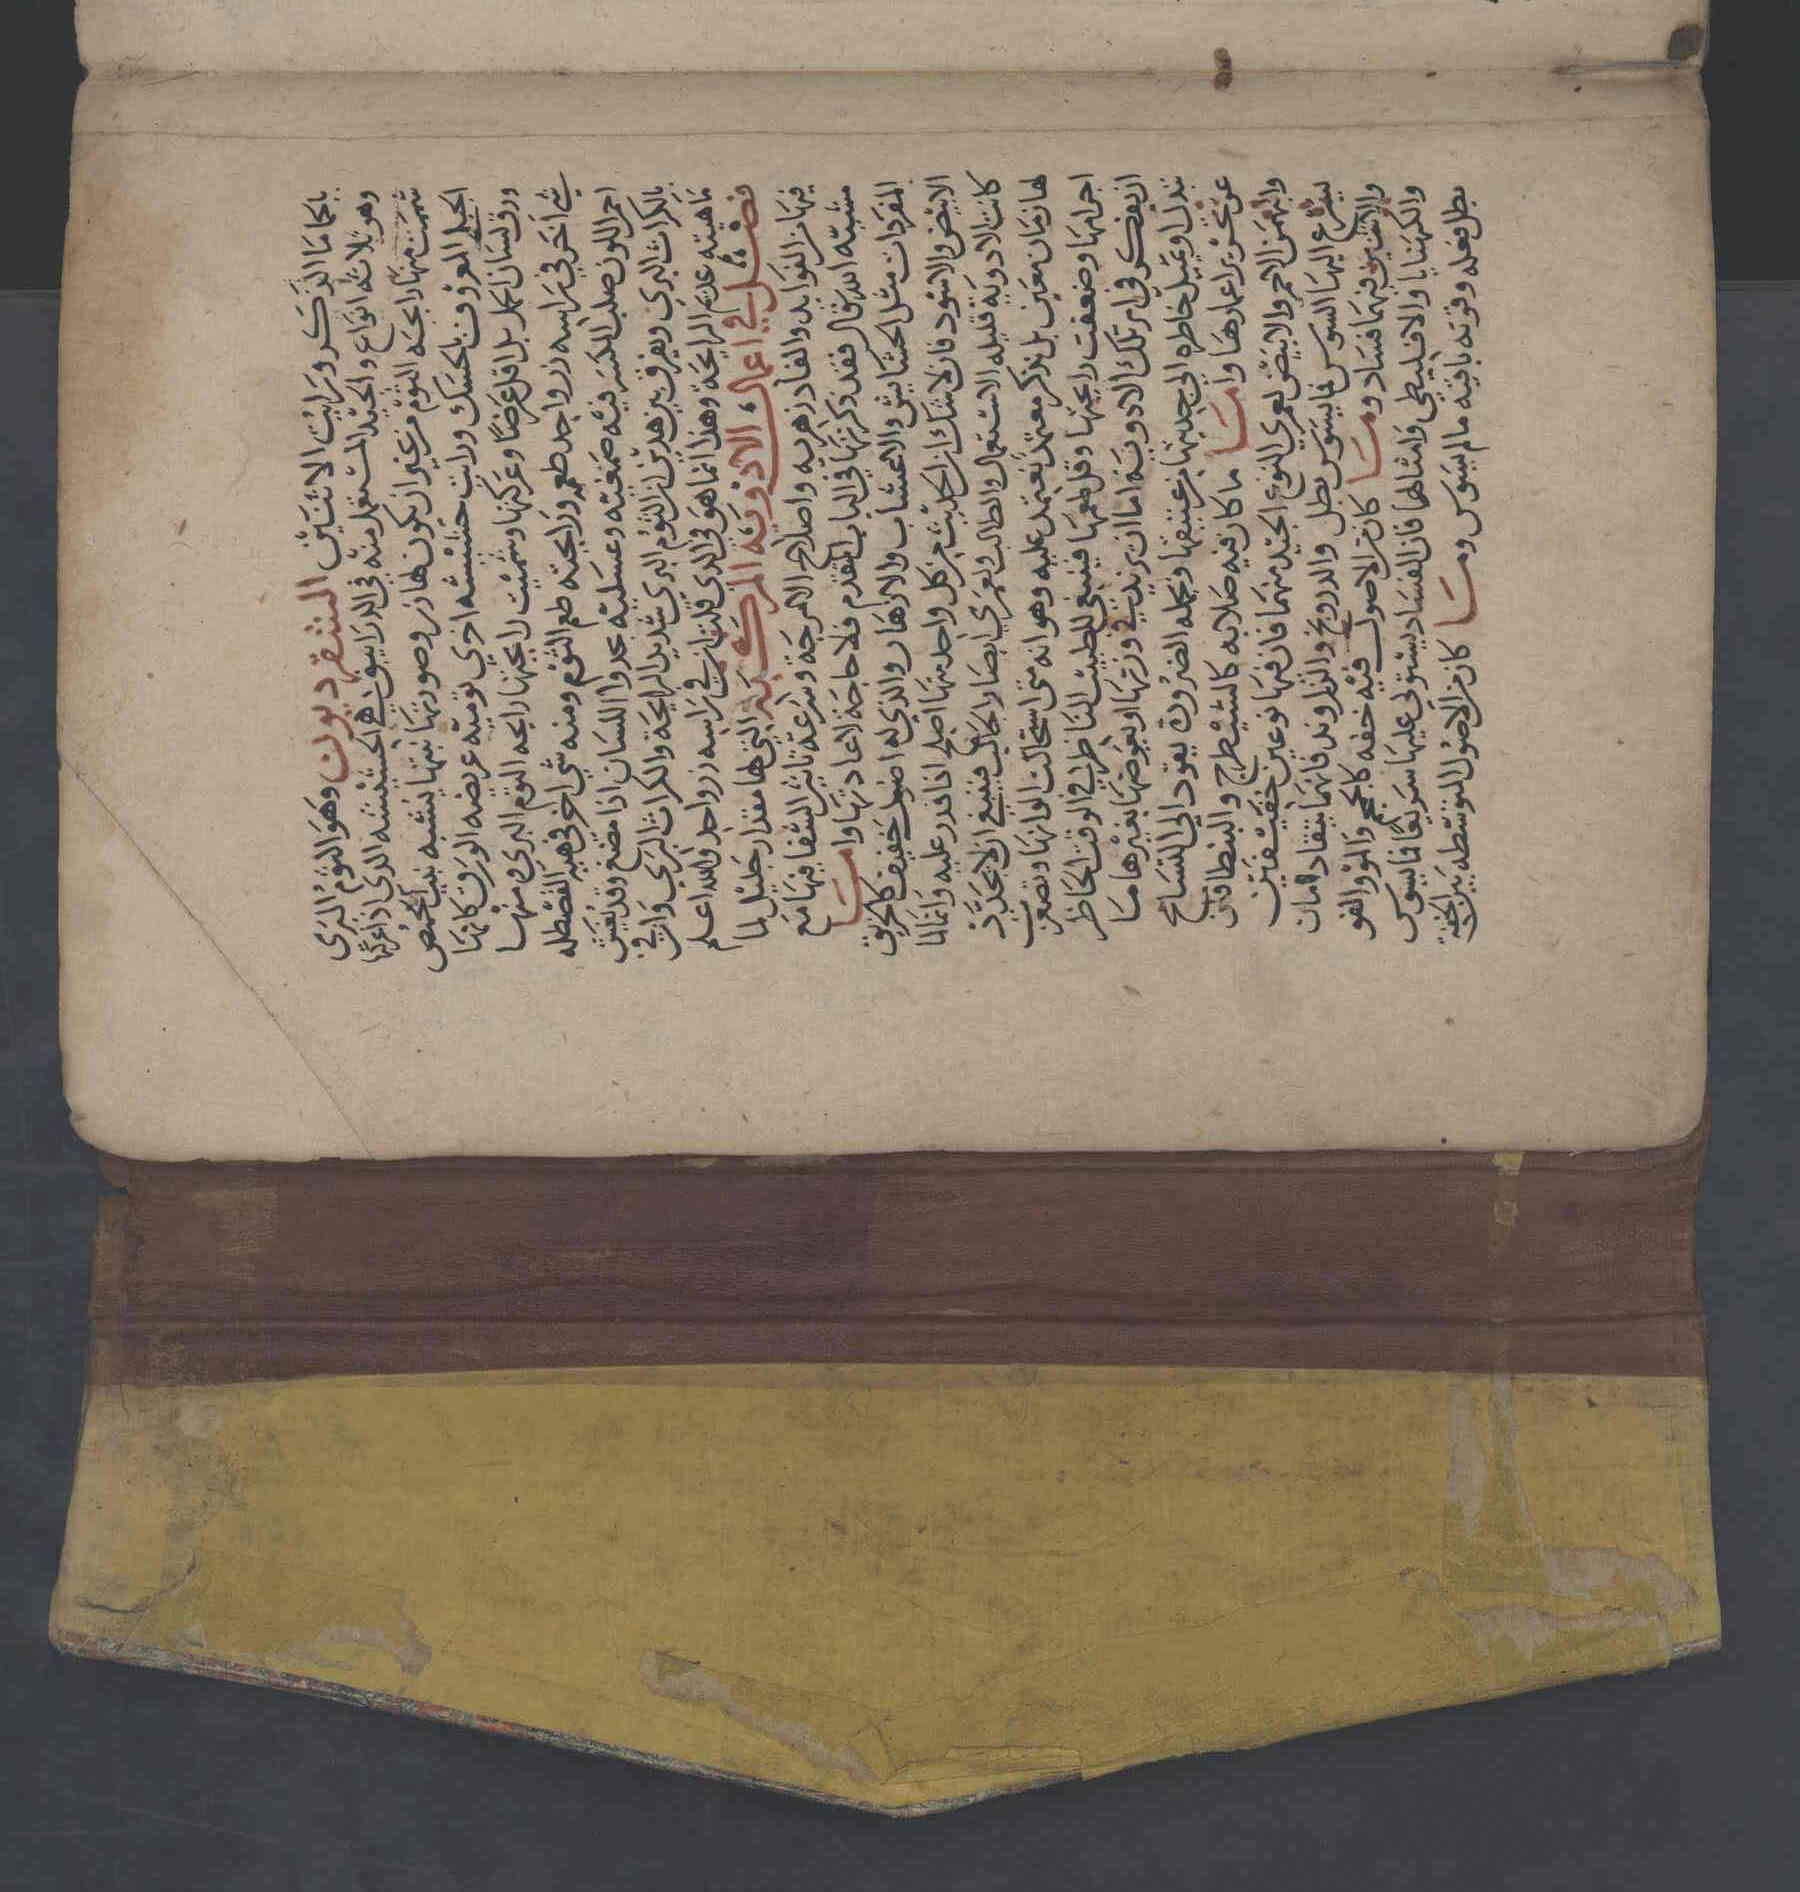 باكما ما الذكر ورايت الانثتين الشقرديون وهو الثوم البرى
وهو ثلاثة انواع والجيد المستعمل منه في الدرياق هي الحشيشه الذى اذا عركتها
شممت منها رايحه الثوم من غير ان يكون لها زر وصورتها نبتها يشبه نبت الحمص
الجبلي المعروف بالحسك ورايت حشيشه اخرى ثوميه عريضه الورق كانها
ورق لسان الحمل بل اقل عرضا وعركتها وشميت رايحتها رايحه الثوم البرى ومنها
شي اخر في راسه زر واحد طعمه ورايحته طعم الثوم ومنه شي اخر في هيه القسطله
احمر اللون صلب المكسر فيه صمغيه وعسليه يحدوا اللسان اذا مضغ وقد يغش
بالكراث البري ويفرق بين هذين ان الثوم البري شديد الرايحة والكراث البرى وان في
ماهيته عدم الرايحة وهذا انما هو في الذي قلت ان في راسه زر واحد والله اعلم
فصل في اعمال الادوية المركبه التي لها مقدار جليل لما
فيها من الفوايد والفادزهريه واصلاح الامزجة وسرعة تاثير الشفا فيها مع
مشيه الله تعالى فقد ذكرتها في الباب المتقدم فلا حاجة لاعادتها واما
المفردات مثل الحشايش والاعشاب والازهار والذي له اصول خفيف كالخربق
الابيض والاسود فان لا شك ان الحديث من كل واحد منها اصلح اذا قدر عليه وانما لما
كانت الادوية قليله الاستعمال والطالب ولعمري ايضا والجالب فينبغي ان لا يحدد
لها زمان معين بل نذكر معتمدًا يعتمد عليه وهو انه متى استحالت الوانها وتصعرت
اجرامها وضعفت رايحتها وقل طعمها فينبغي للطبيب الناظر في الوقت الحاظر
ان يفكر في امر تلك الادوية اما ان يزيد في وزنها او يعوضها بغيرها مما
تبدل او يميل خاطره الى جديتها من عتيقها وبجمله الضروره يقود الى التسامح
عن تحرير اعمارها واما ما كان فيه صلابه كالشيطرج والبنطافلن
والبهمن الاحمر والابيض لعمري النوع الجيد منهما فان فيها نوعين خفيفين
يسرع اليها السوس فما يسوس بطل والدرونج والزراوند فانهما يتقادمان
والاثنين فيهما فساد وما كان من الاصول فيه خفه كالجعبح والمو والفو
والكهنايا والاقليطي وامثالها فان الفساد يستولي عليها سريعًا فما يسوس
بطل فعله وقوته باقيه ما لم يسوس وما كان من الاصول المتوسطه بين الخفة